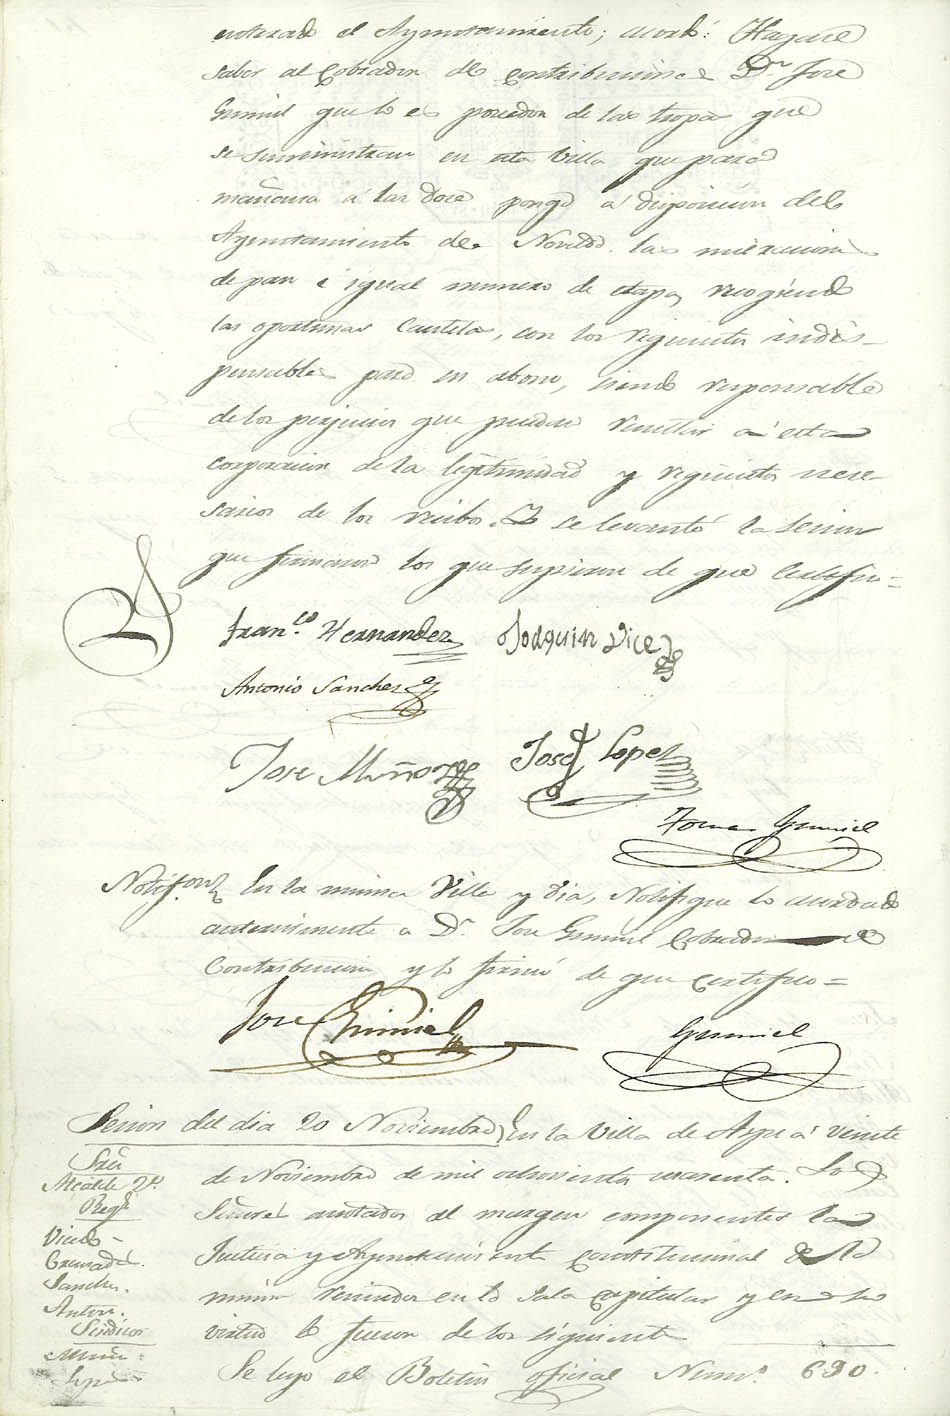 enterado el Ayuntamiento; acordó: Hagase
saber al Cobrador de contribuciones Dn. Jose
Gumiel que lo es proveedor de las tropas que
se suministran en esta Villa que para
mañana á las doce ponga á disposicion del
Ayuntamiento de Novelda las mil raciones
de pan é igual numero de etapa, recogiendo
las oportunas Cautelas, con los requisitos indis-
pensables para su abono, siendo responsable
de los perjuicios que puedan resultar á esta
corporacion de la legitimidad y requisitos nece-
sarios de los recibos. Y se levantó la sesion
que firmaron los que supieron de que Certifico=
Franco. Hernandez Joaquin Vicedo
Antonio Sanchez
Jose Muñoz Josef Lopez
Tomas Gumiel
Notifon. En la misma Villa y dia, Notifique lo acordado
anteriormente a D. Jose Gumiel Cobrador de
Contribucion y lo firmó de que certifico=
Jose Gumiel Gumiel
Sesion del dia 20 Noviembre, En la Villa de Aspe á veinte
Sres.
de Noviembre de mil ochocientos cuarenta. Los
Alcalde 2º.
Regs.
Señores anotados al margen componentes la
Vicedo-
Justicia y Ayuntamiento constitucional de la
Sanchez.
misma reunidos en la Sala Capitular y en su
Anton.
Sindicos
virtud lo fueron de los siguiente
Muñoz
Se leyo el Boletin oficial Numo. 690.
Lopez